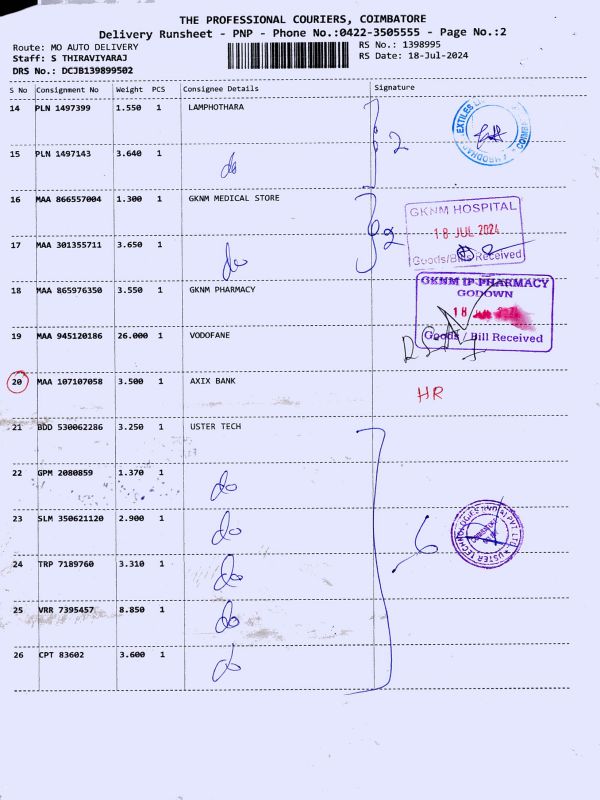 THE PROFESSIONAL COURIERS, COIMBATORE
Delivery Runsheet - PNP - Phone No.:0422-3505555 - Page No.:2
Route: MO AUTO DELIVERY
RS No.: 1398995
Staff: S THIRAVIYARAJ
RS Date: 18-Jul-2024
DRS No.: DCJB139899502
S No Consignment No Weight PCS Consignee Details Signature
14 PLN 1497399 1.550 1 LAMPHOTHARA
15 PLN 1497143 3.640 1 do
2
16 MAA 866557004 1.300 1 GKNM MEDICAL STORE
GKNM HOSPITAL
18 JUL 2024
Goods/Bills Received
17 MAA 301355711 3.650 1 do
2
18 MAA 865976350 3.550 1 GKNM PHARMACY
GKNM IP PHARMACY
GODOWN
18
Goods / Bill Received
19 MAA 945120186 26.000 1 VODOFANE
20 MAA 107107058 3.500 1 AXIX BANK
HR
21 BDD 530062286 3.250 1 USTER TECH
22 GPM 2080859 1.370 1 do
23 SLM 350621120 2.900 1 do
6
24 TRP 7189760 3.310 1 do
25 VRR 7395457 8.850 1 do
26 CPT 83602 3.600 1 do